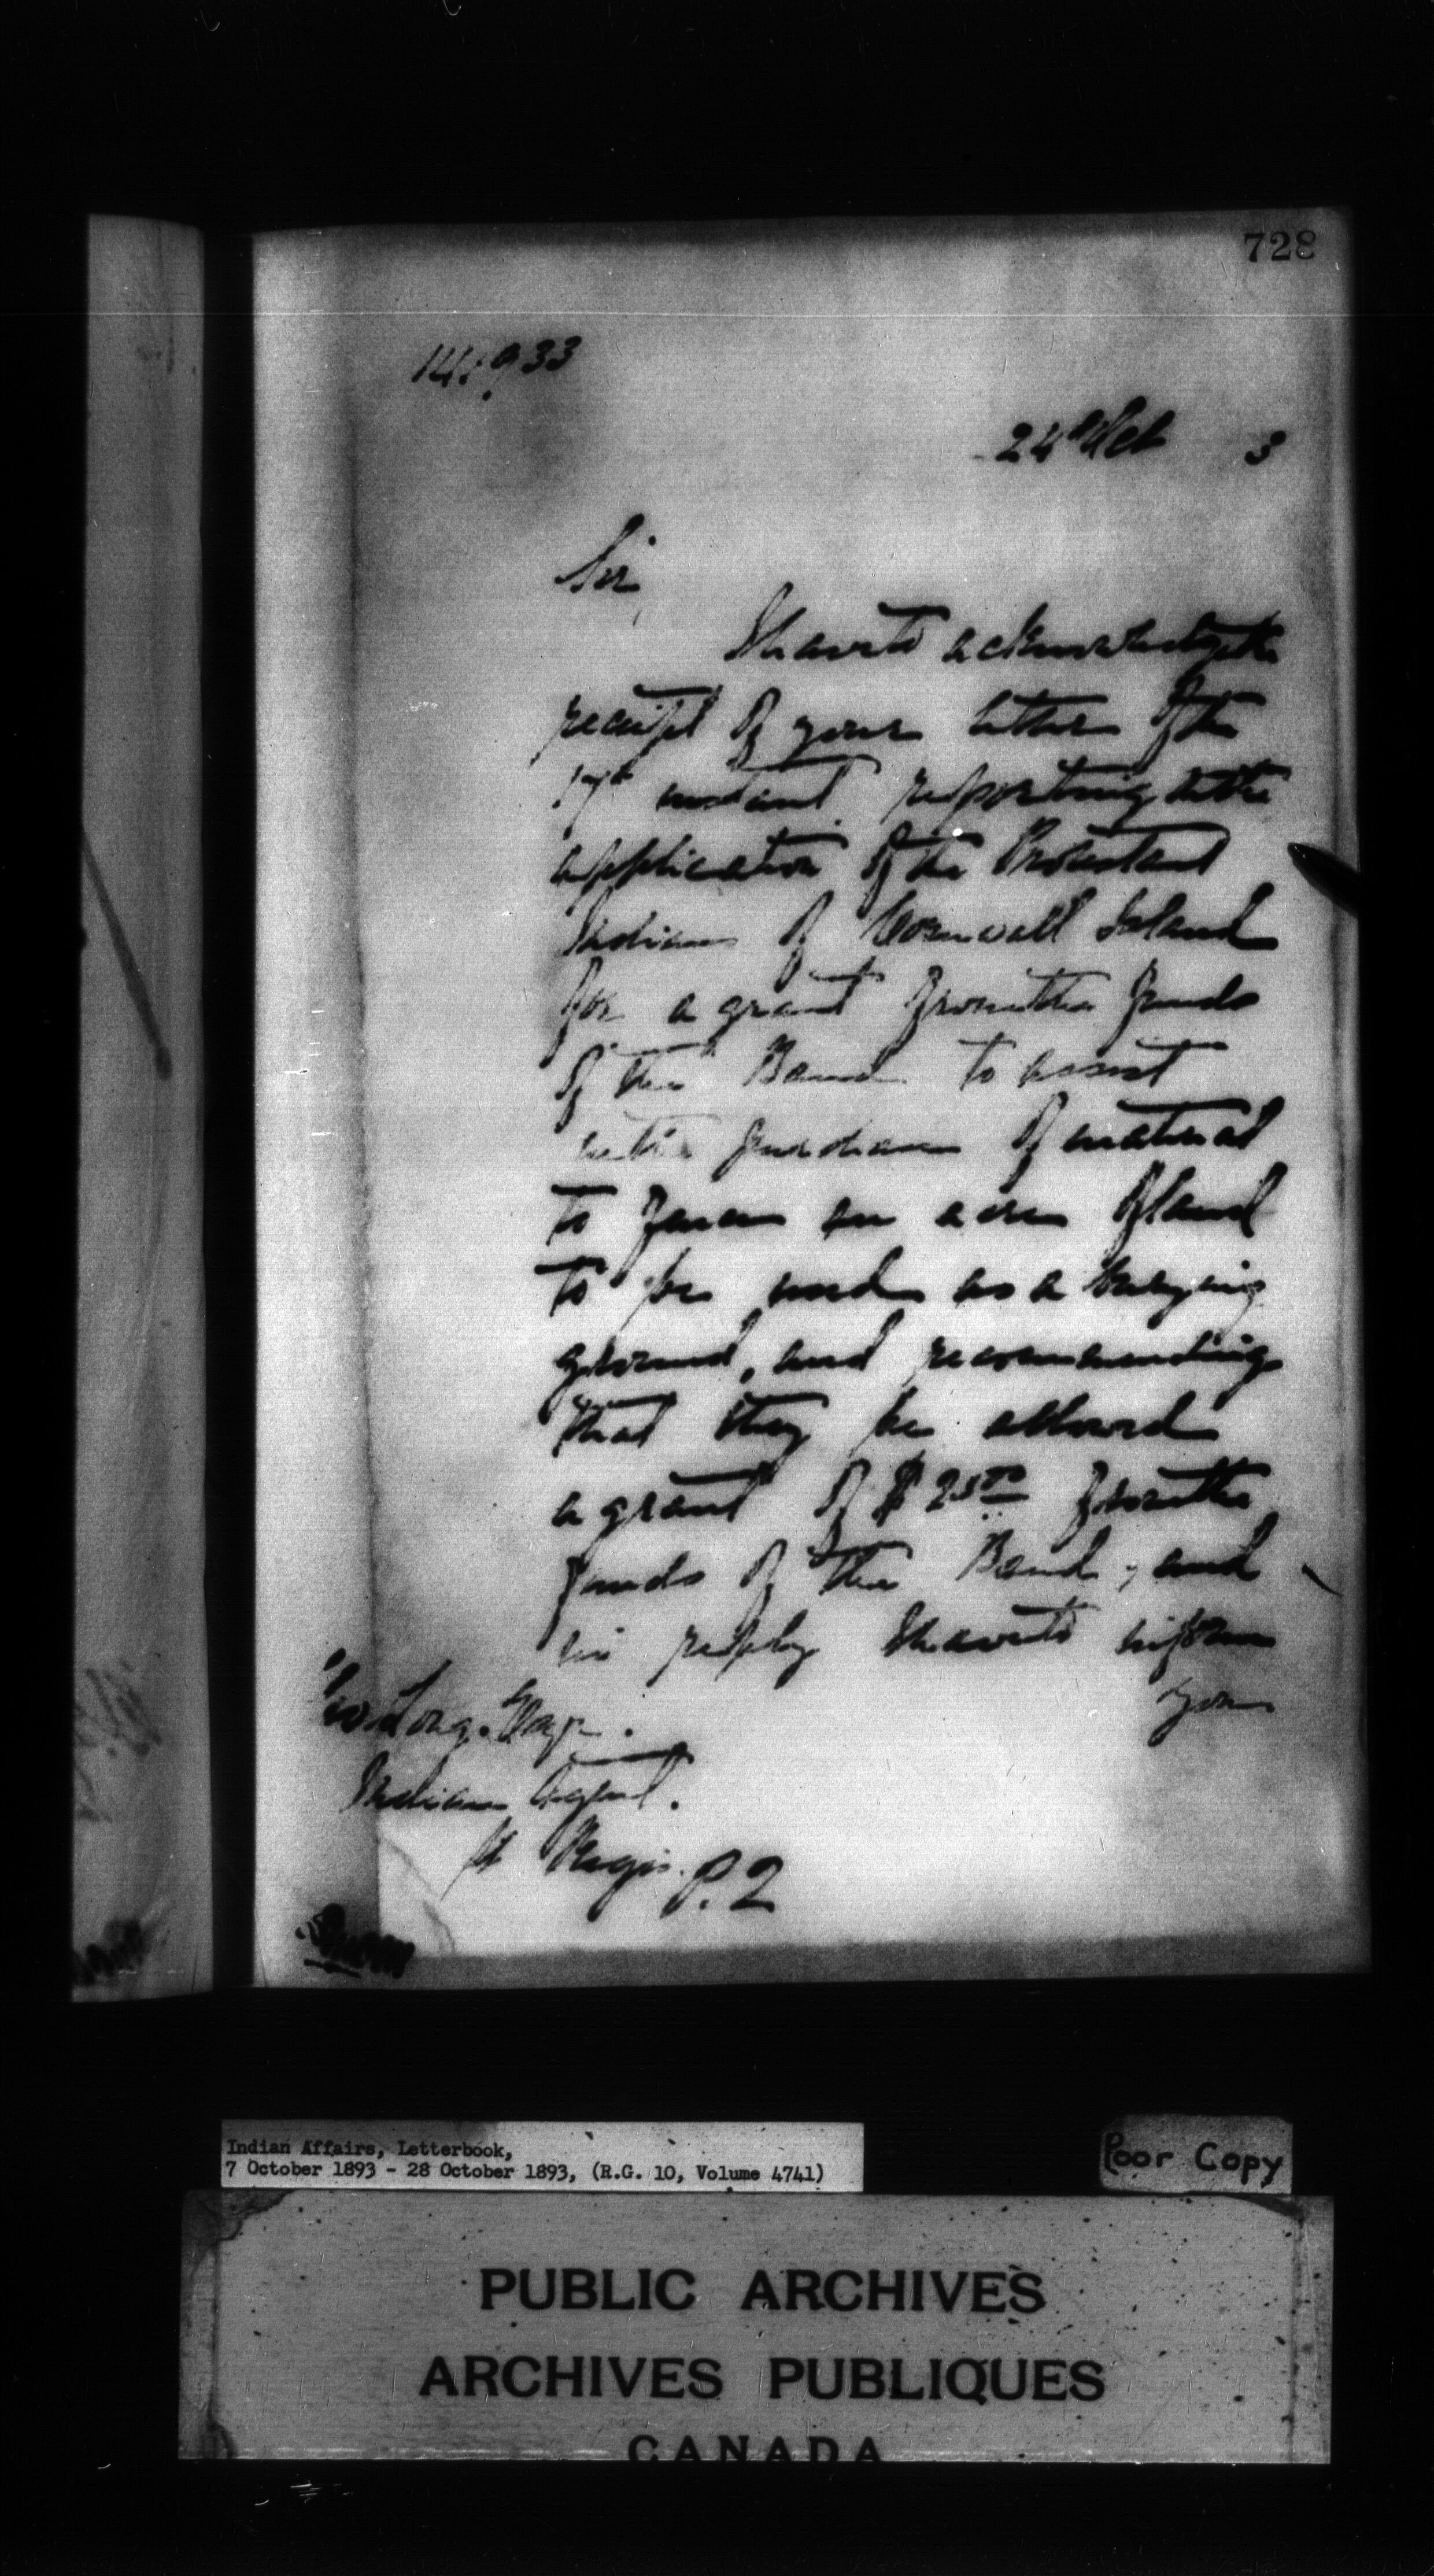 728
24th Oct 3
Sir,
I have to acknowledge the
receipt of your letter of the
17th instant reporting on the
application of the Protestant
Indians of Cornwall Island
for a grant from the funds
of the Band to assist
in the purchase of material
to fence an acre of land
to be used as a burying
ground, and recommending
that they be allowed
a grant of $25.00 from the
funds of the Band, and
in reply I have to inform
you
Long. Esqr.
Indian Agent.
St Regis. P.Q
Indian Affairs, Letterbook,
7 October 1893 - 28 October 1893, (R.G. 10, Volume 4741)
Poor Copy
PUBLIC ARCHIVES
ARCHIVES PUBLIQUES
CANADA